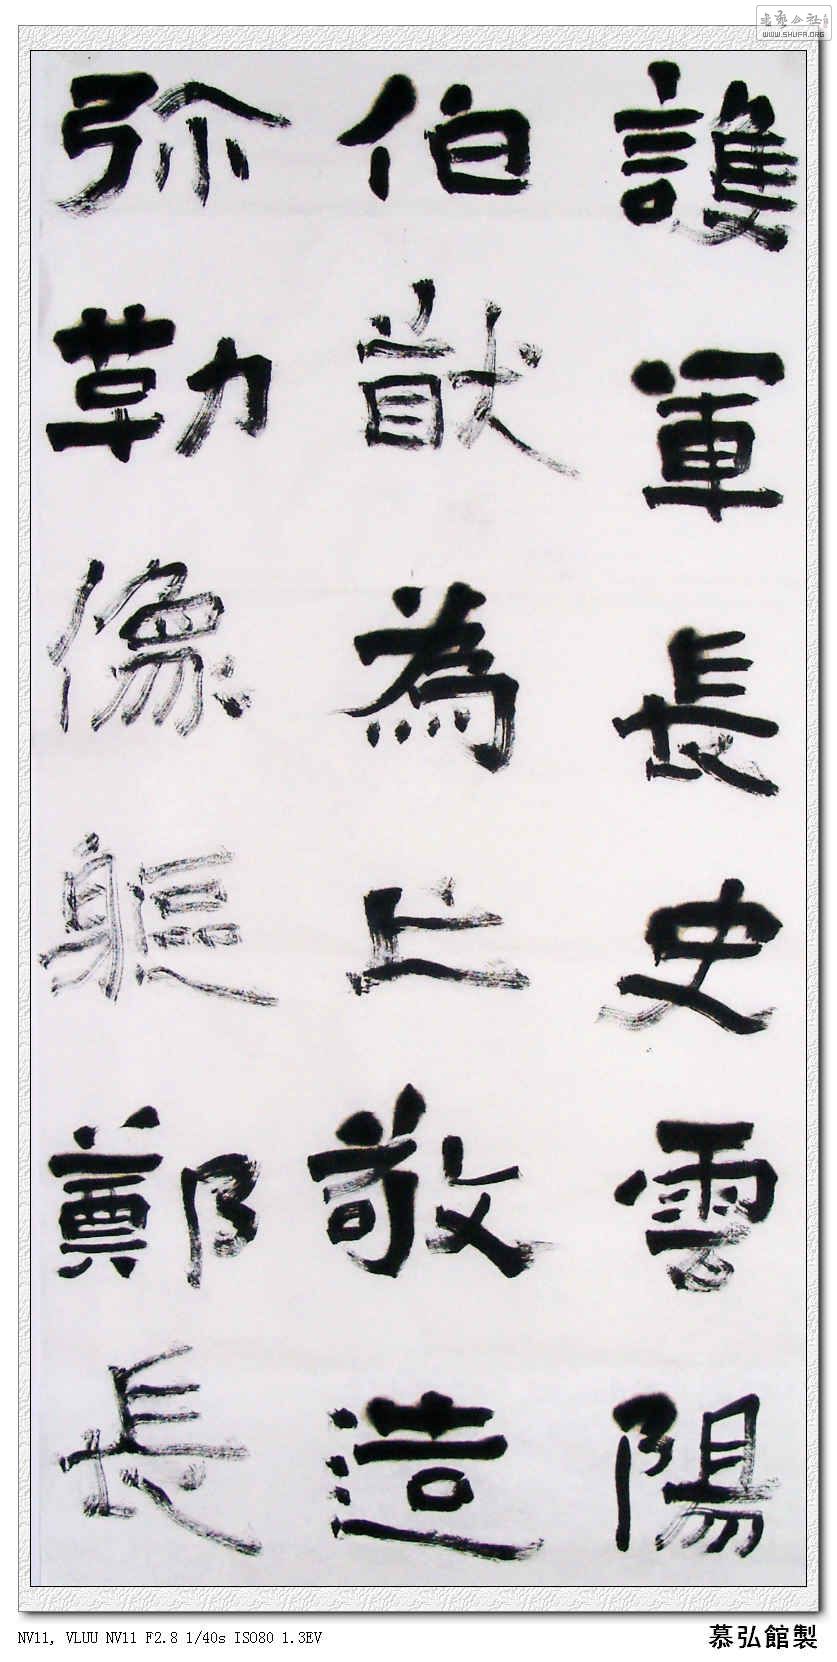 護軍長史雲陽
伯猷為亡敬造
弥勒像軀鄭長
WWW.SHUFA.ORG
NV11, VLUU NV11 F2.8 1/40s ISO80 1.3EV
慕弘館製